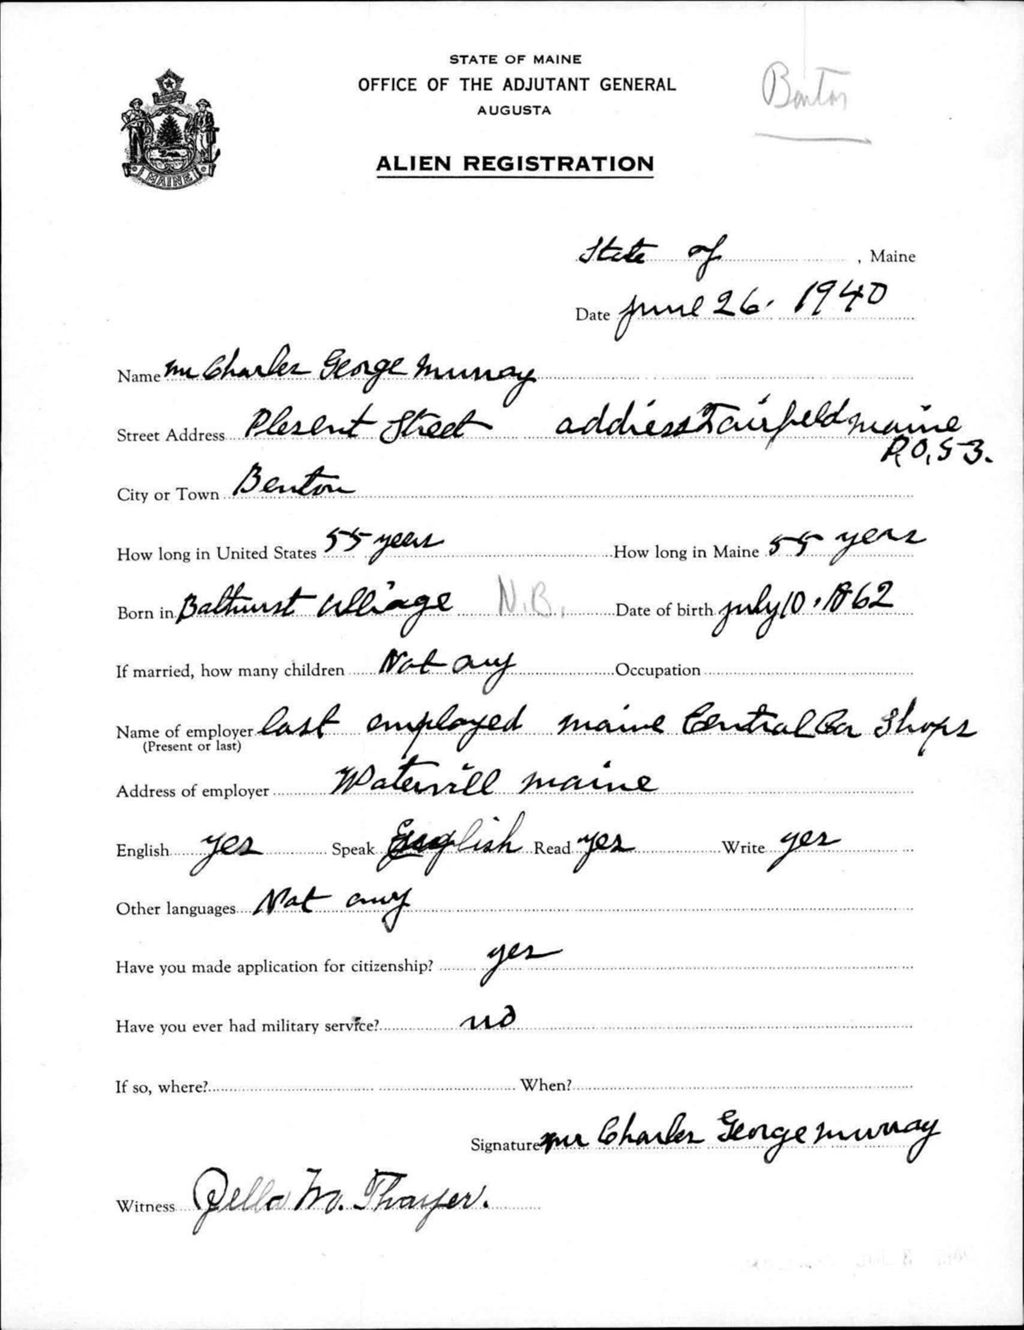 STATE OF MAINE
OFFICE OF THE ADJUTANT GENERAL
AUGUSTA
Benton
ALIEN REGISTRATION
MAINE
State of , Maine
Date June 26. 1940
Name Mr Charles George Murray
Street Address Plesent Street address Fairfield Maine
R.O, S 3.
City or Town Benton
How long in United States 55 years How long in Maine 55 years
Born in Bathurst villiage N.B. Date of birth july 10, 1862
If married, how many children Not any Occupation
Name of employer last employed Maine Central Car Shops
(Present or last)
Address of employer Watervill Maine
English yes Speak English Read yes Write yes
Other languages Not any
Have you made application for citizenship? yes
Have you ever had military service? no
If so, where? When?
Signature Mr Charles George Murray
Witness Della M. Thayer.